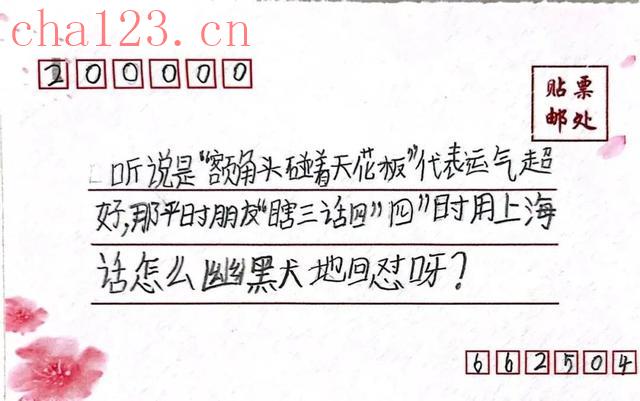 cha123.cn
200000
贴票
邮处
听说是“额角头碰着天花板”代表运气超
好,那平时朋友“瞎三话四”四”时用上海
话怎么幽默地回怼呀?
662504